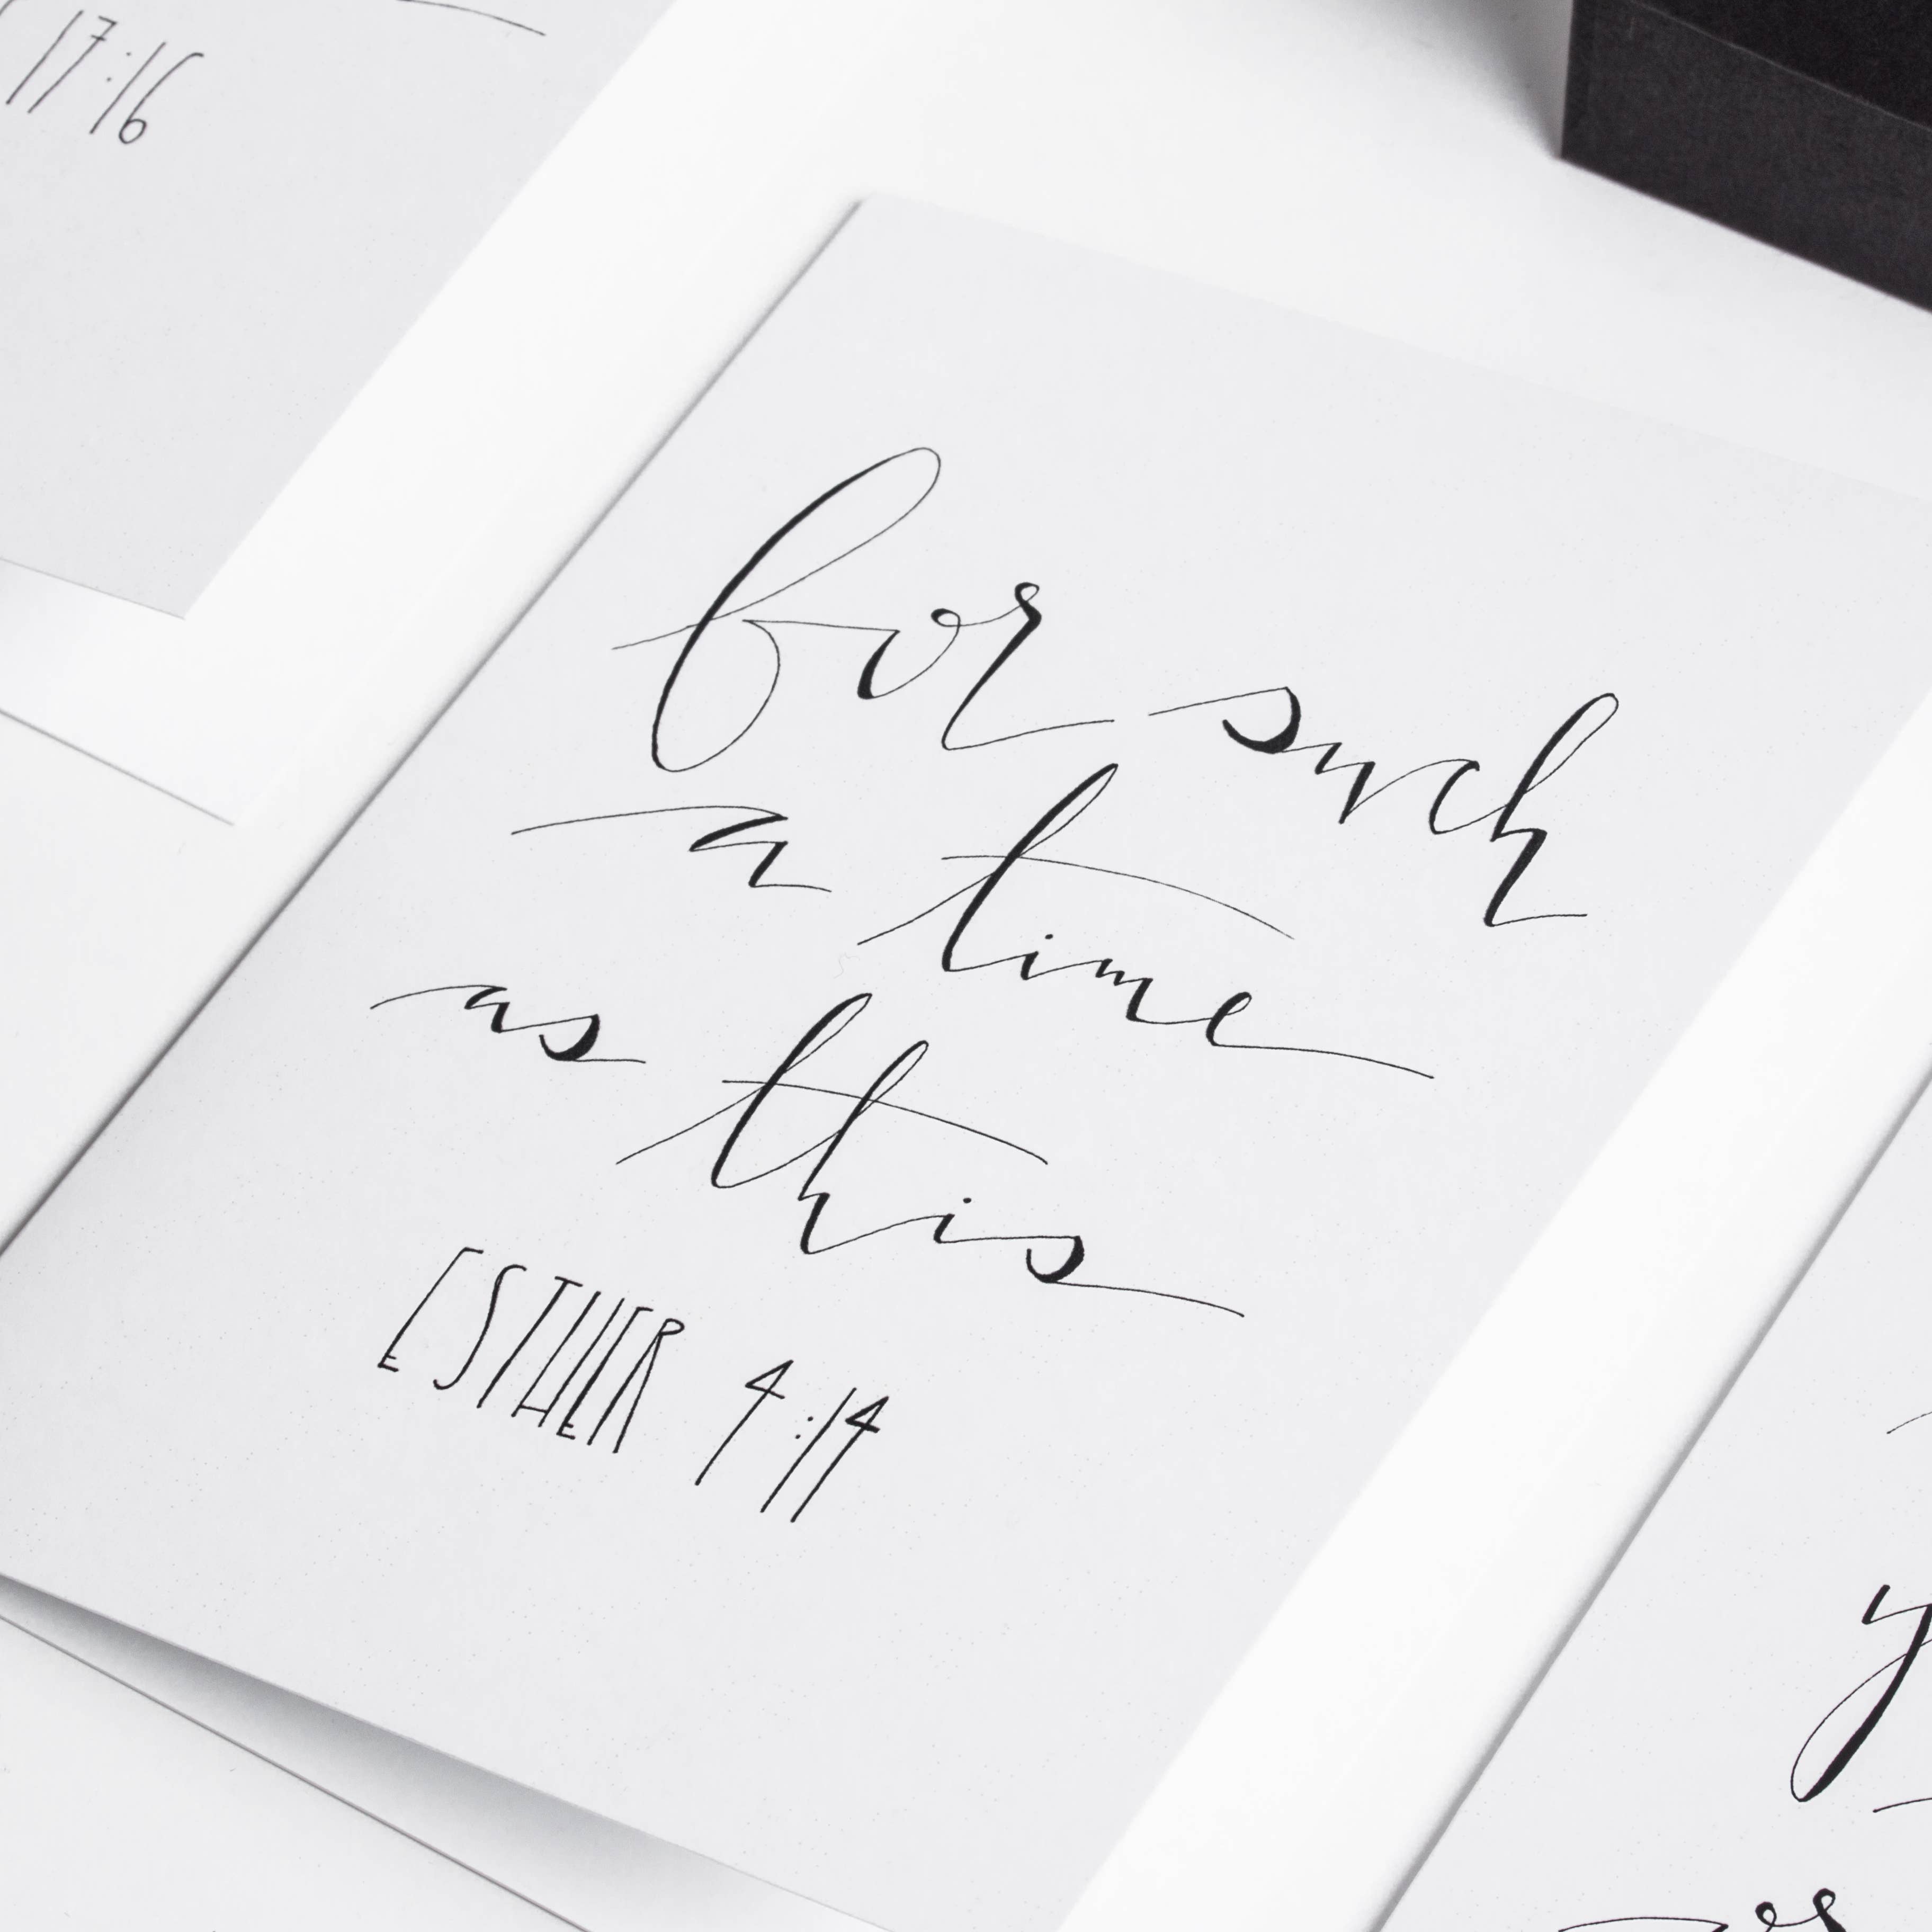 17:16
for such
a time
as this
ESTHER 4:14
y